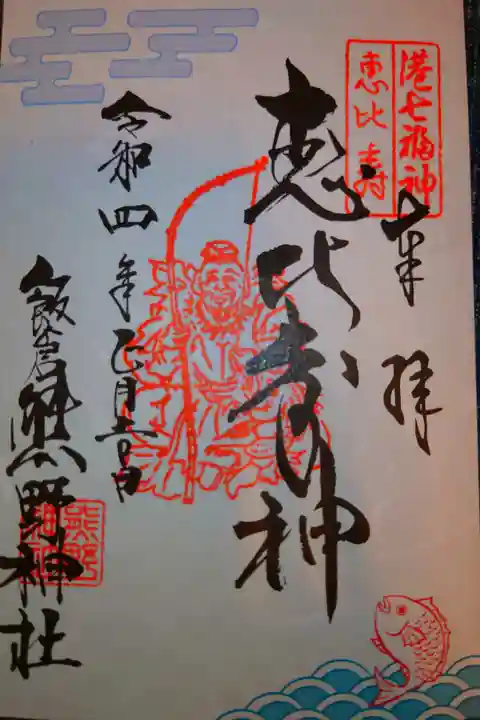 港七福神
恵比寿
奉拝
恵比寿神
令和四年正月
飯倉熊野神社
熊野